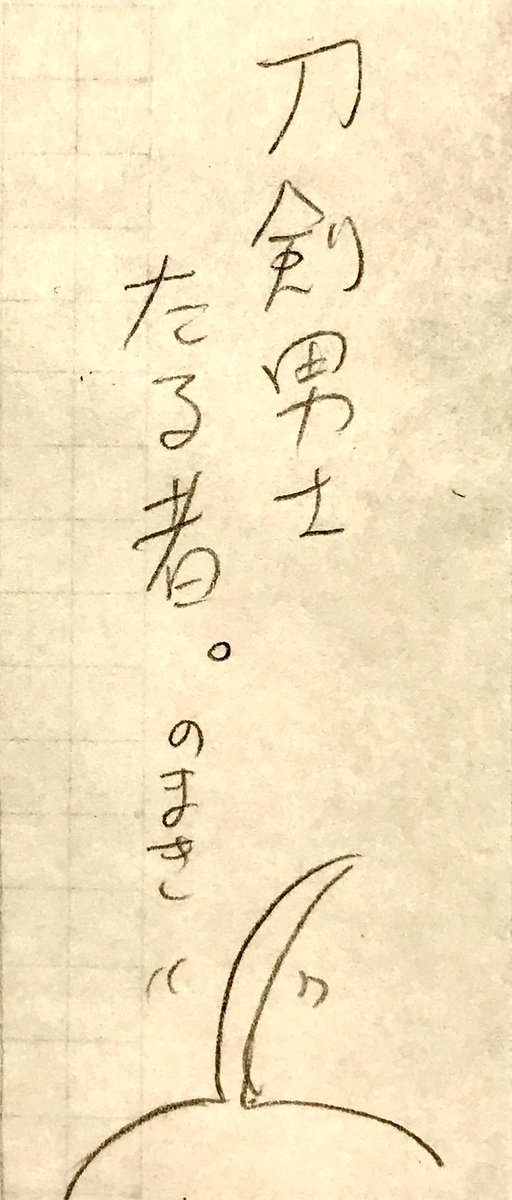 刀剣男士
たる者。
のまき